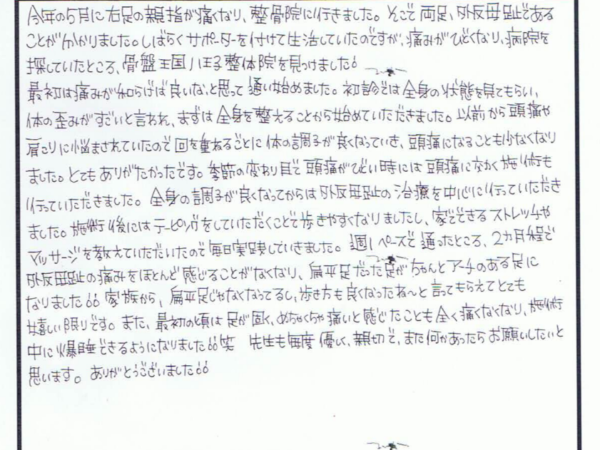 今年の5月に右足の親指が痛くなり、整骨院に行きました。そこで両足、外反母趾である
ことが分かりました。しばらくサポーターを付けて生活していたのですが、痛みがひどくなり、病院を
探していたところ、骨盤王国八王子整体院を見つけました!
最初は痛みが和らげば良いなと思って通い始めました。初診では全身の状態を見てもらい、
体の歪みがすごいと言われ、まずは全身を整えることから始めていただきました。以前から頭痛や
肩こりに悩まされていたので回を重ねるごとに体の調子が良くなっていき、頭痛になることも少なくなり
ました。とてもありがたかったです。季節の変わり目で頭痛がひどい時には頭痛に効く施術も
行っていただきました。全身の調子が良くなってからは外反母趾の治療を中心に行っていただき
ました。施術後にはテーピングをしていただくことで歩きやすくなりましたし、家でできるストレッチや
マッサージを教えていただいたので毎日実践していきました。週1ペースで通ったところ、2ヵ月程で
外反母趾の痛みをほとんど感じることがなくなり、扁平足だった足がちゃんとアーチのある足に
なりました!! 家族から、扁平足じゃなくなってるし、歩き方も良くなったね〜と言ってもらえてとても
嬉しい限りです。また、最初の頃は足が固く、めちゃくちゃ痛いと感じたことも全く痛くなくなり、施術
中に爆睡できるようになりました!!笑 先生も毎度優しく、親切で、また何かあったらお願いしたいと
思います。ありがとうございました!!